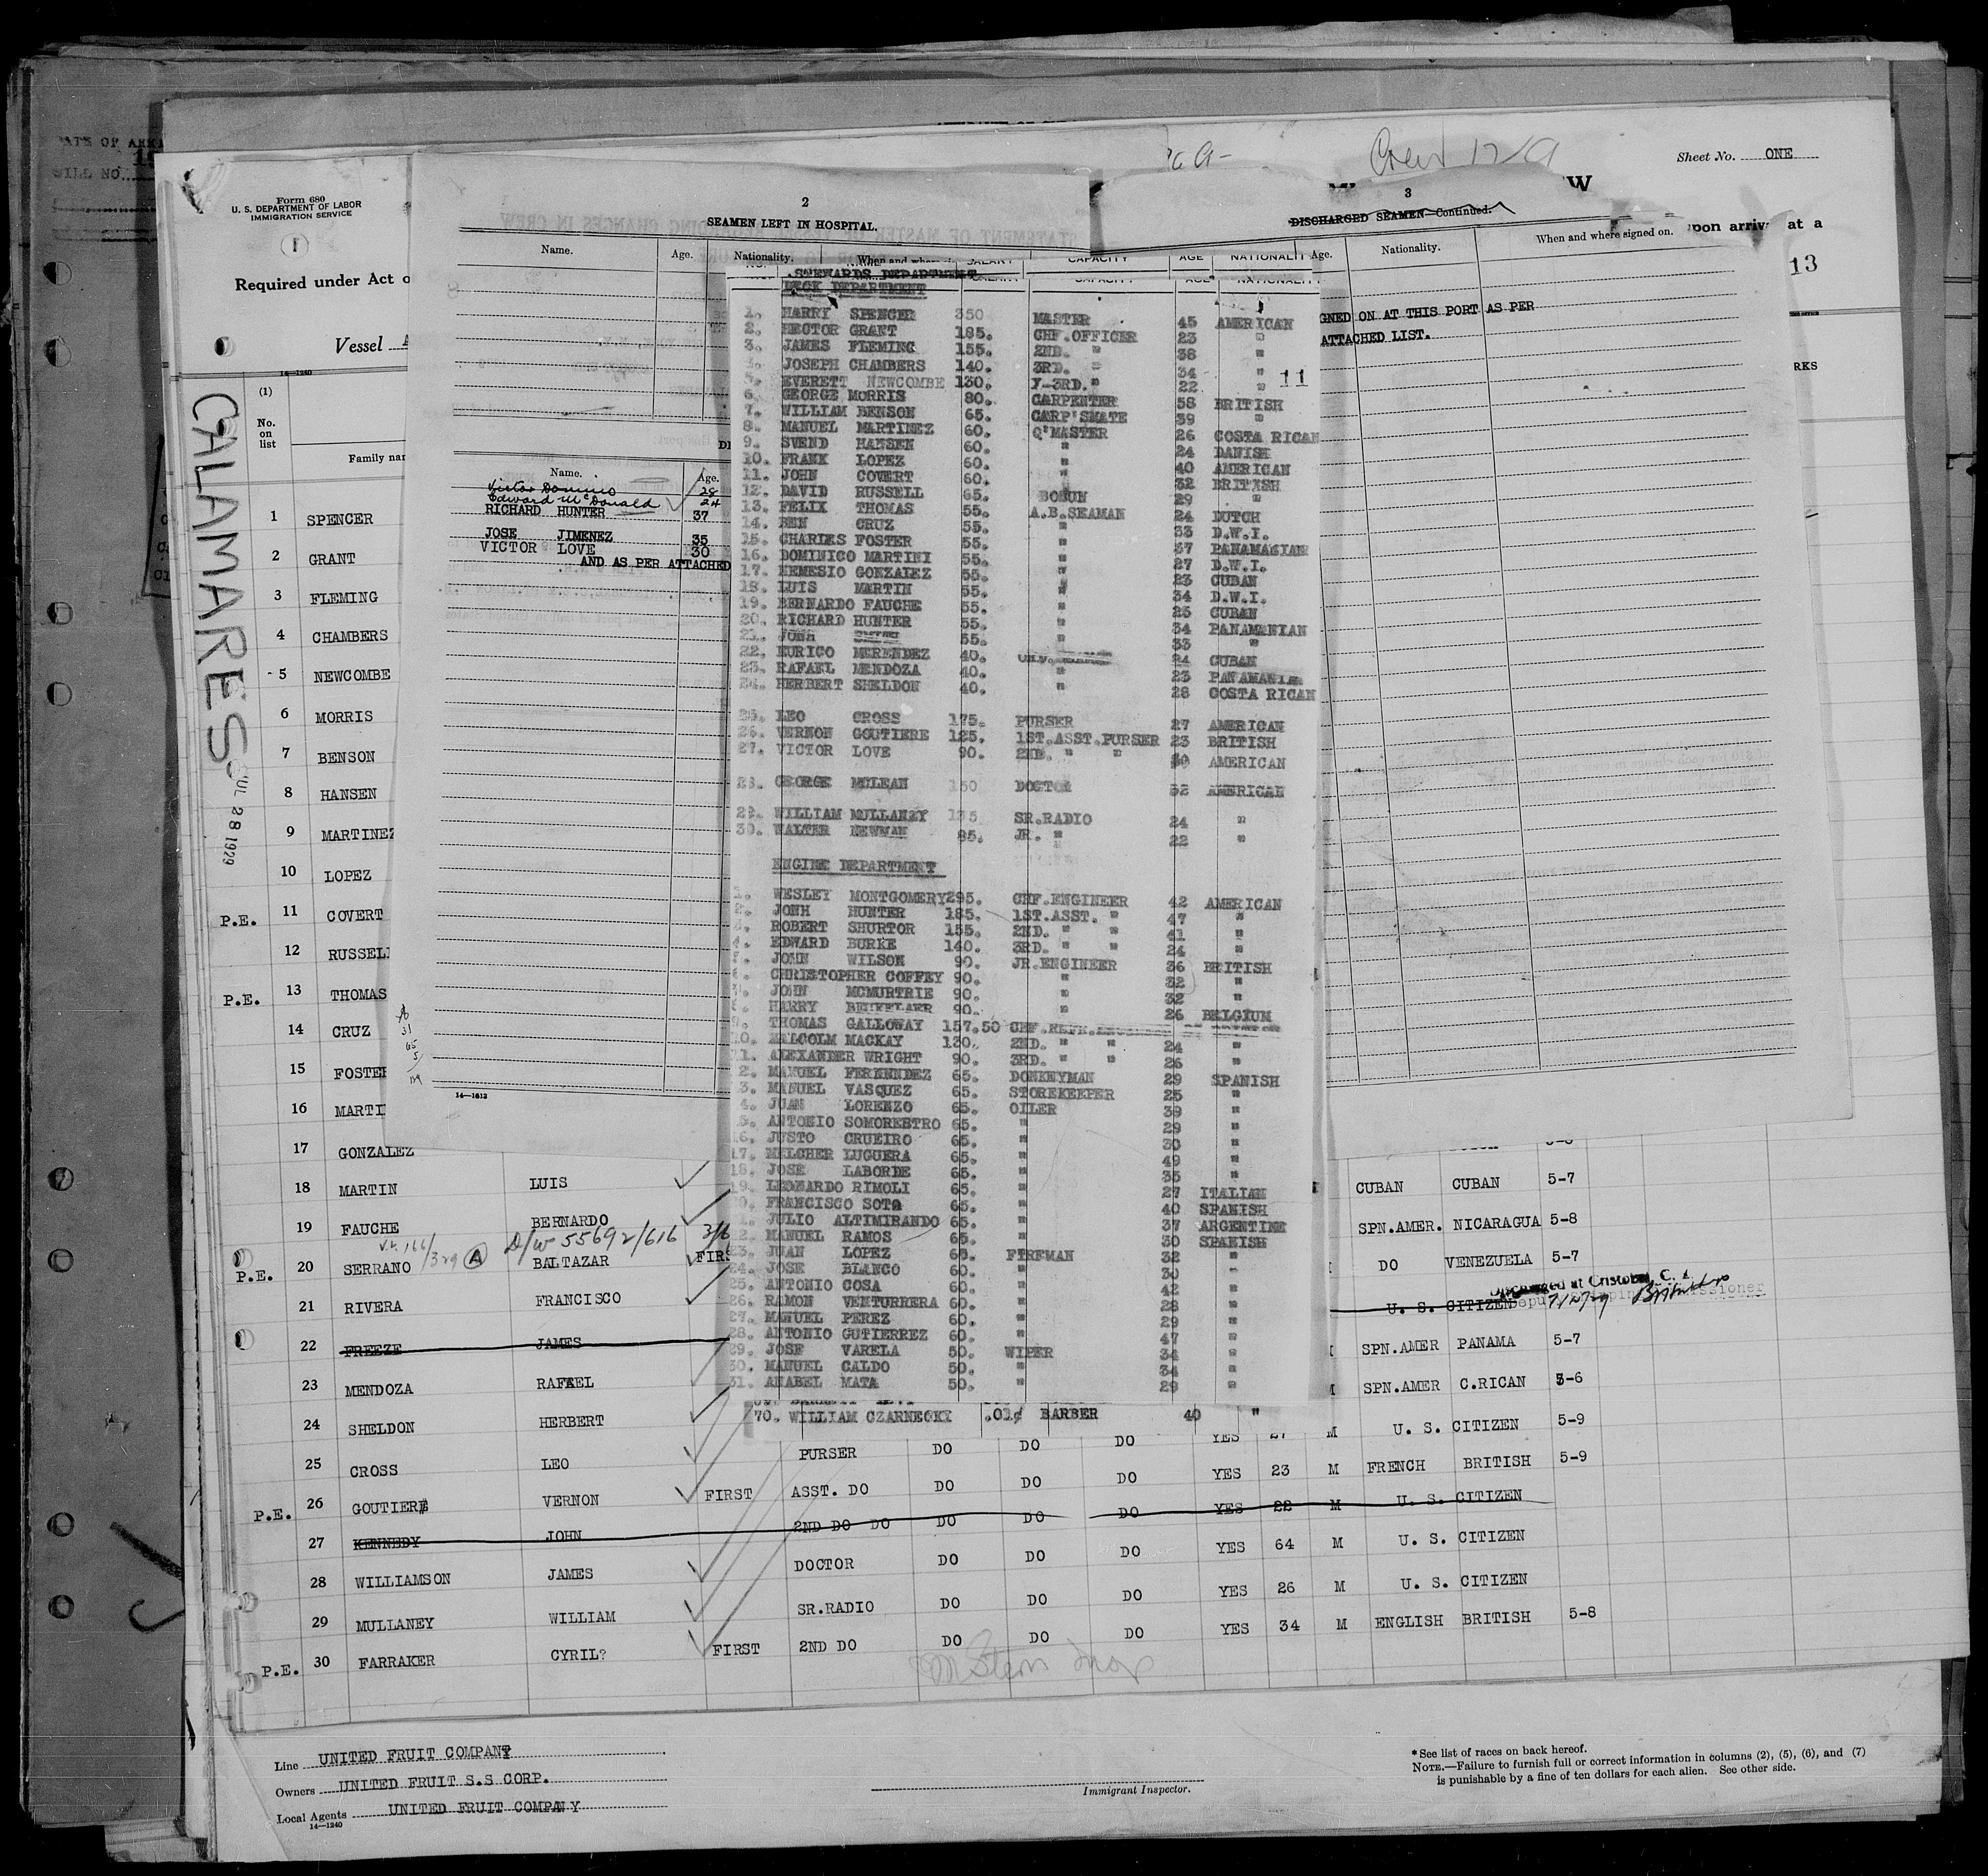 Sheet No. ONE
Form 680
U. S. DEPARTMENT OF LABOR
IMMIGRATION SERVICE
1
Required under Act o
Vessel
upon arriv at a
13
RKS
14—1240
(1)
No. on list
Family nar
CALAMARES
JUL 28 1929
2
SEAMEN LEFT IN HOSPITAL.
Name. Age. Nationality. When and where
3
DISCHARGED SEAMEN—Continued.
Age. Nationality. When and where signed on.
GNED ON AT THIS PORT AS PER
ATTACHED LIST.
11
Name. Age.
Victor Domino 28
Edward McDonald 24
RICHARD HUNTER 37
JOSE JIMENEZ 35
VICTOR LOVE 30
AND AS PER ATTACHED
14—1612
SALARY CAPACITY AGE NATIONALIT
STEWARDS DEPARTMENT
DECK DEPARTMENT
1. HARRY SPENCER 350 MASTER 45 AMERICAN
2. HECTOR GRANT 185. CHF.OFFICER 23 "
3. JAMES FLEMING 155. 2ND. " 38 "
JOSEPH CHAMBERS 140. 3RD. " 34 "
5. EVERETT NEWCOMBE 130. Y-3RD." 22 "
6. GEORGE MORRIS 80. CARPENTER 58 BRITISH
7. WILLIAM BENSON 65. CARP'SMATE 39 "
8. MANUEL MARTINEZ 60. Q'MASTER 26 COSTA RICAN
9. SVEND HANSEN 60. " 24 DANISH
10. FRANK LOPEZ 60. " 40 AMERICAN
11. JOHN COVERT 60. " 32 BRITISH
12. DAVID RUSSELL 65. BOSUN 29 "
13. FELIX THOMAS 55. A.B.SEAMAN 24 DUTCH
14. BEN CRUZ 55. " 33 D.W.I.
15. CHARLES FOSTER 55. " 37 PANAMANIAN
16. DOMINICO MARTINI 55. " 27 D.W.I.
17. NEMESIO GONZALEZ 55. " 23 CUBAN
18. LUIS MARTIN 55. " 34 D.W.I.
19. BERNARDO FAUCHE 55. " 25 CUBAN
20. RICHARD HUNTER 55. " 34 PANAMANIAN
21. JOHN 55. " 33 "
22. EURICO MERENDEZ 40. 24 CUBAN
23. RAFAEL MENDOZA 40. " 23 PANAMANIA
24. HERBERT SHELDON 40. " 28 COSTA RICAN
25. LEO CROSS 175. PURSER 27 AMERICAN
26. VERNON GOUTIERE 125. 1ST.ASST.PURSER 23 BRITISH
27. VICTOR LOVE 90. 2ND. " " 30 AMERICAN
28. GEORGE MCLEAN 150 DOCTOR 32 AMERICAN
29. WILLIAM MULLANEY SR.RADIO 24 "
30. WALTER NEWMAN 85. JR. " 22 "
ENGINE DEPARTMENT
1. WESLEY MONTGOMERY 295. CHF.ENGINEER 42 AMERICAN
2. JOHN HUNTER 185. 1ST.ASST. " 47 "
3. ROBERT SHURTOR 155. 2ND. " " 41 "
4. EDWARD BURKE 140. 3RD. " " 24 "
JOHN WILSON 90. JR.ENGINEER 36 BRITISH
CHRISTOPHER COFFEY 90. " 32 "
JOHN MCMURTRIE 90. " 32 "
HARRY 90. " 26 BELGIUM
9. THOMAS GALLOWAY 157.50 CHF.REFR.
10. MALCOLM MACKAY 130. 2ND. " " 24 "
11. ALEXANDER WRIGHT 90. 3RD. " " 26 "
2. MANUEL FERNENDEZ 65. DONKEYMAN 29 SPANISH
3. MANUEL VASQUEZ 65. STOREKEEPER 25 "
4. JUAN LORENZO 65. OILER 39 "
5. ANTONIO SOMORESTRO 65. " 29 "
16. JUSTO CRUEIRO 65. " 30 "
17. MELCHER LUGUERA 65. " 49 "
18. JOSE LABORDE 65. " 35 "
19. LEONARDO RIMOLI 65. " 27 ITALIAN
FRANCISCO SOTO 65. " 40 SPANISH
JULIO ALTIMIRANDO 65. " 37 ARGENTINE
2. MANUEL RAMOS 65. " 30 SPANISH
23. JUAN LOPEZ 60. FIREMAN 32 "
24. JOSE BLANCO 60. " 30 "
25. ANTONIO COSA 60. " 42 "
26. RAMON VENTURRERA 60. " 28 "
27. MANUEL PEREZ 60. " 29 "
28. ANTONIO GUTIERREZ 60. " 47 "
29. JOSE VARELA 50. WIPER 34 "
30. MANUEL CALDO 50. " 34 "
31. ANABEL MATA 50. " 29 "
70. WILLIAM CZARNECKY .01¢ BARBER 40 "
1 SPENCER
2 GRANT
3 FLEMING
4 CHAMBERS
- 5 NEWCOMBE
6 MORRIS
7 BENSON
8 HANSEN
9 MARTINEZ
10 LOPEZ
P.E. 11 COVERT
12 RUSSELL
P.E. 13 THOMAS
14 CRUZ
15 FOSTER
16 MARTI
17 GONZALEZ
18 MARTIN LUIS CUBAN CUBAN 5-7
19 FAUCHE BERNARDO SPN.AMER. NICARAGUA 5-8
D/W 55692/616
P.E. 20 SERRANO A BALTAZAR FIRS DO VENEZUELA 5-7
Discharged at Cristobal, C. Z.
21 RIVERA FRANCISCO U. S. CITIZEN
22 FREEZE JAMES SPN.AMER PANAMA 5-7
23 MENDOZA RAFAEL SPN.AMER C.RICAN 5-6
24 SHELDON HERBERT U. S. CITIZEN 5-9
25 CROSS LEO PURSER DO DO DO YES 27 M FRENCH BRITISH 5-9
P.E. 26 GOUTIERE VERNON FIRST ASST. DO DO DO DO YES 23 M U. S. CITIZEN
27 KENNEDY JOHN 2ND DO DO DO DO DO YES 22 M U. S. CITIZEN
28 WILLIAMSON JAMES DOCTOR DO DO DO YES 64 M U. S. CITIZEN
29 MULLANEY WILLIAM SR.RADIO DO DO DO YES 26 M
P.E. 30 FARRAKER CYRIL? FIRST 2ND DO DO DO DO YES 34 M ENGLISH BRITISH 5-8
Line UNITED FRUIT COMPANY
Owners UNITED FRUIT S.S CORP.
Local Agents UNITED FRUIT COMPANY
14—1240
Immigrant Inspector.
* See list of races on back hereof.
NOTE.—Failure to furnish full or correct information in columns (2), (5), (6), and (7)
is punishable by a fine of ten dollars for each alien. See other side.